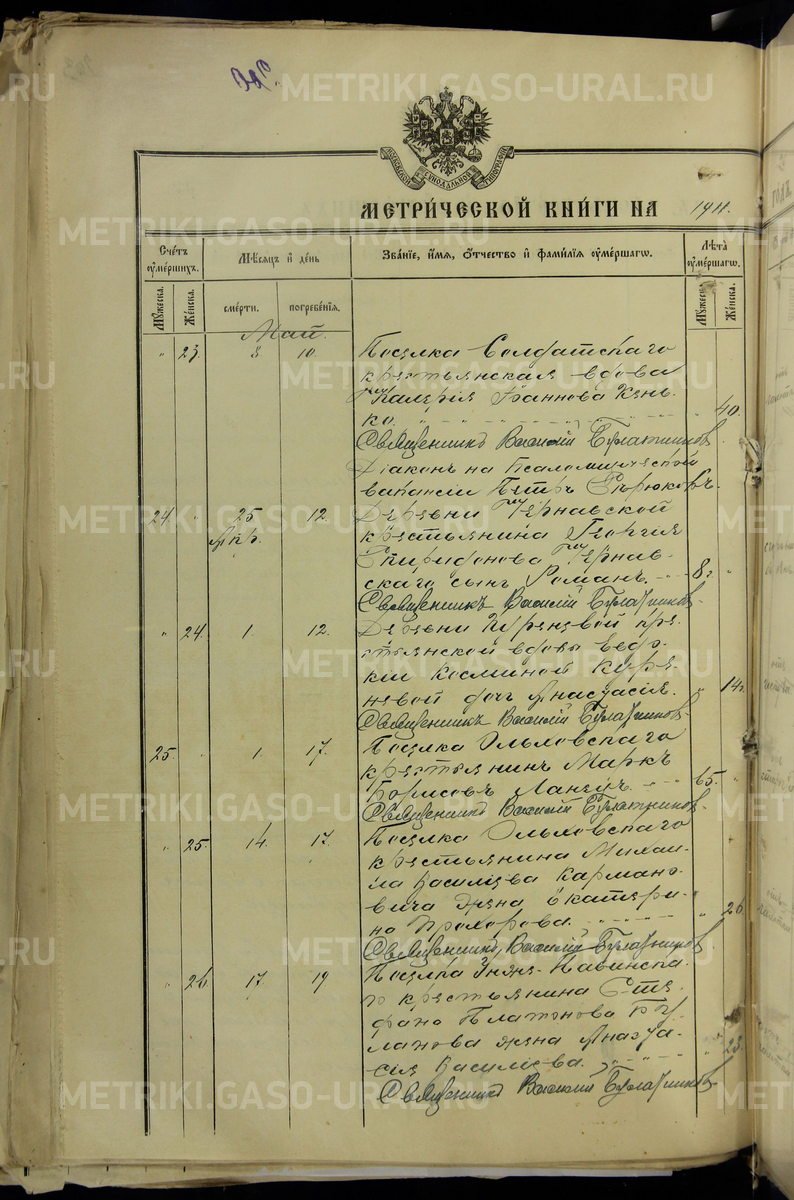 METRIKI.GASO-URAL.RU
МЕТРИ́ЧЕСКОЙ КНИ́ГИ НА 1911.
Сче́тъ ᲂу҆ме́ршихъ.
Мѣ́сяцъ и҆ де́нь
Зва́нїе, и҆́мя, ѻ҆́тчество и҆ фами́лїя ᲂу҆ме́ршагѡ.
Лѣ́та ᲂу҆ме́ршагѡ.
Мꙋ́жеска.
Же́нска.
сме́рти.
погребе́нїѧ.
Мꙋ́жеска.
Же́нска.
Май.
" 23. 8 10. Поселка Солдатскаго
крестьянская вдова
Валерія Іоаннова Кень-
ко. " 40.
Священникъ Василій Булатников
Діаконъ на Псаломщической
вакансіи Петръ Бирюковъ.
24 " 25 12. Деревни Чернавской
Апр. крестьянина Георгія
Спиридонова Чернав-
скаго сынъ Романъ. 8 г "
Священникъ Василій Булатников
" 24. 1. 12. Деревни Киреневой кре-
стьянской вдовы Евдо-
кіи Косминой Кире-
невой дочь Анастасія. " 14 г
Священникъ Василій Булатников
25. " 1. 17. Поселка Ольховскаго
крестьянинъ Маркъ
Борисовъ 65. "
Священникъ Василій Булатников
" 25. 14. 17. Поселка Ольховскаго
крестьянина Михаи-
ла Васильева Кармано-
вича жена Екатери-
на Прохорова. " 26
Священникъ Василій Булатников
" 26. 17 19 Поселка
го крестьянина Сте-
фана Платонова Бу-
ланова жена Анаста-
сія Васильева. " 23.
Священникъ Василій Булатников